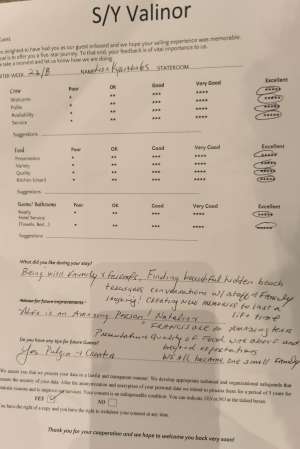 S/Y Valinor
Guest
delighted to have had you as our guest onboard and we hope your sailing experience was memorable.
is to offer you a five star journey. To that end, your feedback is of vital importance to us.
take a moment and let us know how we are doing.
WEEK 22/8 NAME STATEROOM
Crew Poor OK Good Very Good Excellent
Welcome * ** *** **** *****
Polite * ** *** **** *****
Availability * ** *** **** *****
Service * ** *** **** *****
Suggestions
Food Poor OK Good Very Good Excellent
Presentation * ** *** **** *****
Variety * ** *** **** *****
Quality * ** *** **** *****
Kitchen (clean) * ** *** **** *****
Suggestions
Guests' Bathrooms Poor OK Good Very Good Excellent
Ready * ** *** **** *****
Hotel Service
(Towels, Bed...) * ** *** **** *****
Suggestions
What did you like during your stay?
Being with family & friends, Finding beautiful hidden beach
conversations w/ staff & Family
Creating new memories to last a
life time
Advise for future improvements
is an Amazing Person!
Amazing team
Presentation Quality of Food was above and
beyond expectations
Do you have any tips for future Guests?
Yes
We all became one small Family
We assure you that we process your data in a lawful and transparent manner. We develop appropriate technical and organizational safeguards that
ensure the security of your data. After the anonymization and encryption of your personal data we intend to process them for a period of 3 years for
statistic reasons and to improve our services. Your consent is an indispensable condition. You can indicate YES or NO in the ticked boxes.
YES NO
You have the right of a copy and you have the right to withdraw your consent at any time.
Thank you for your cooperation and we hope to welcome you back very soon!